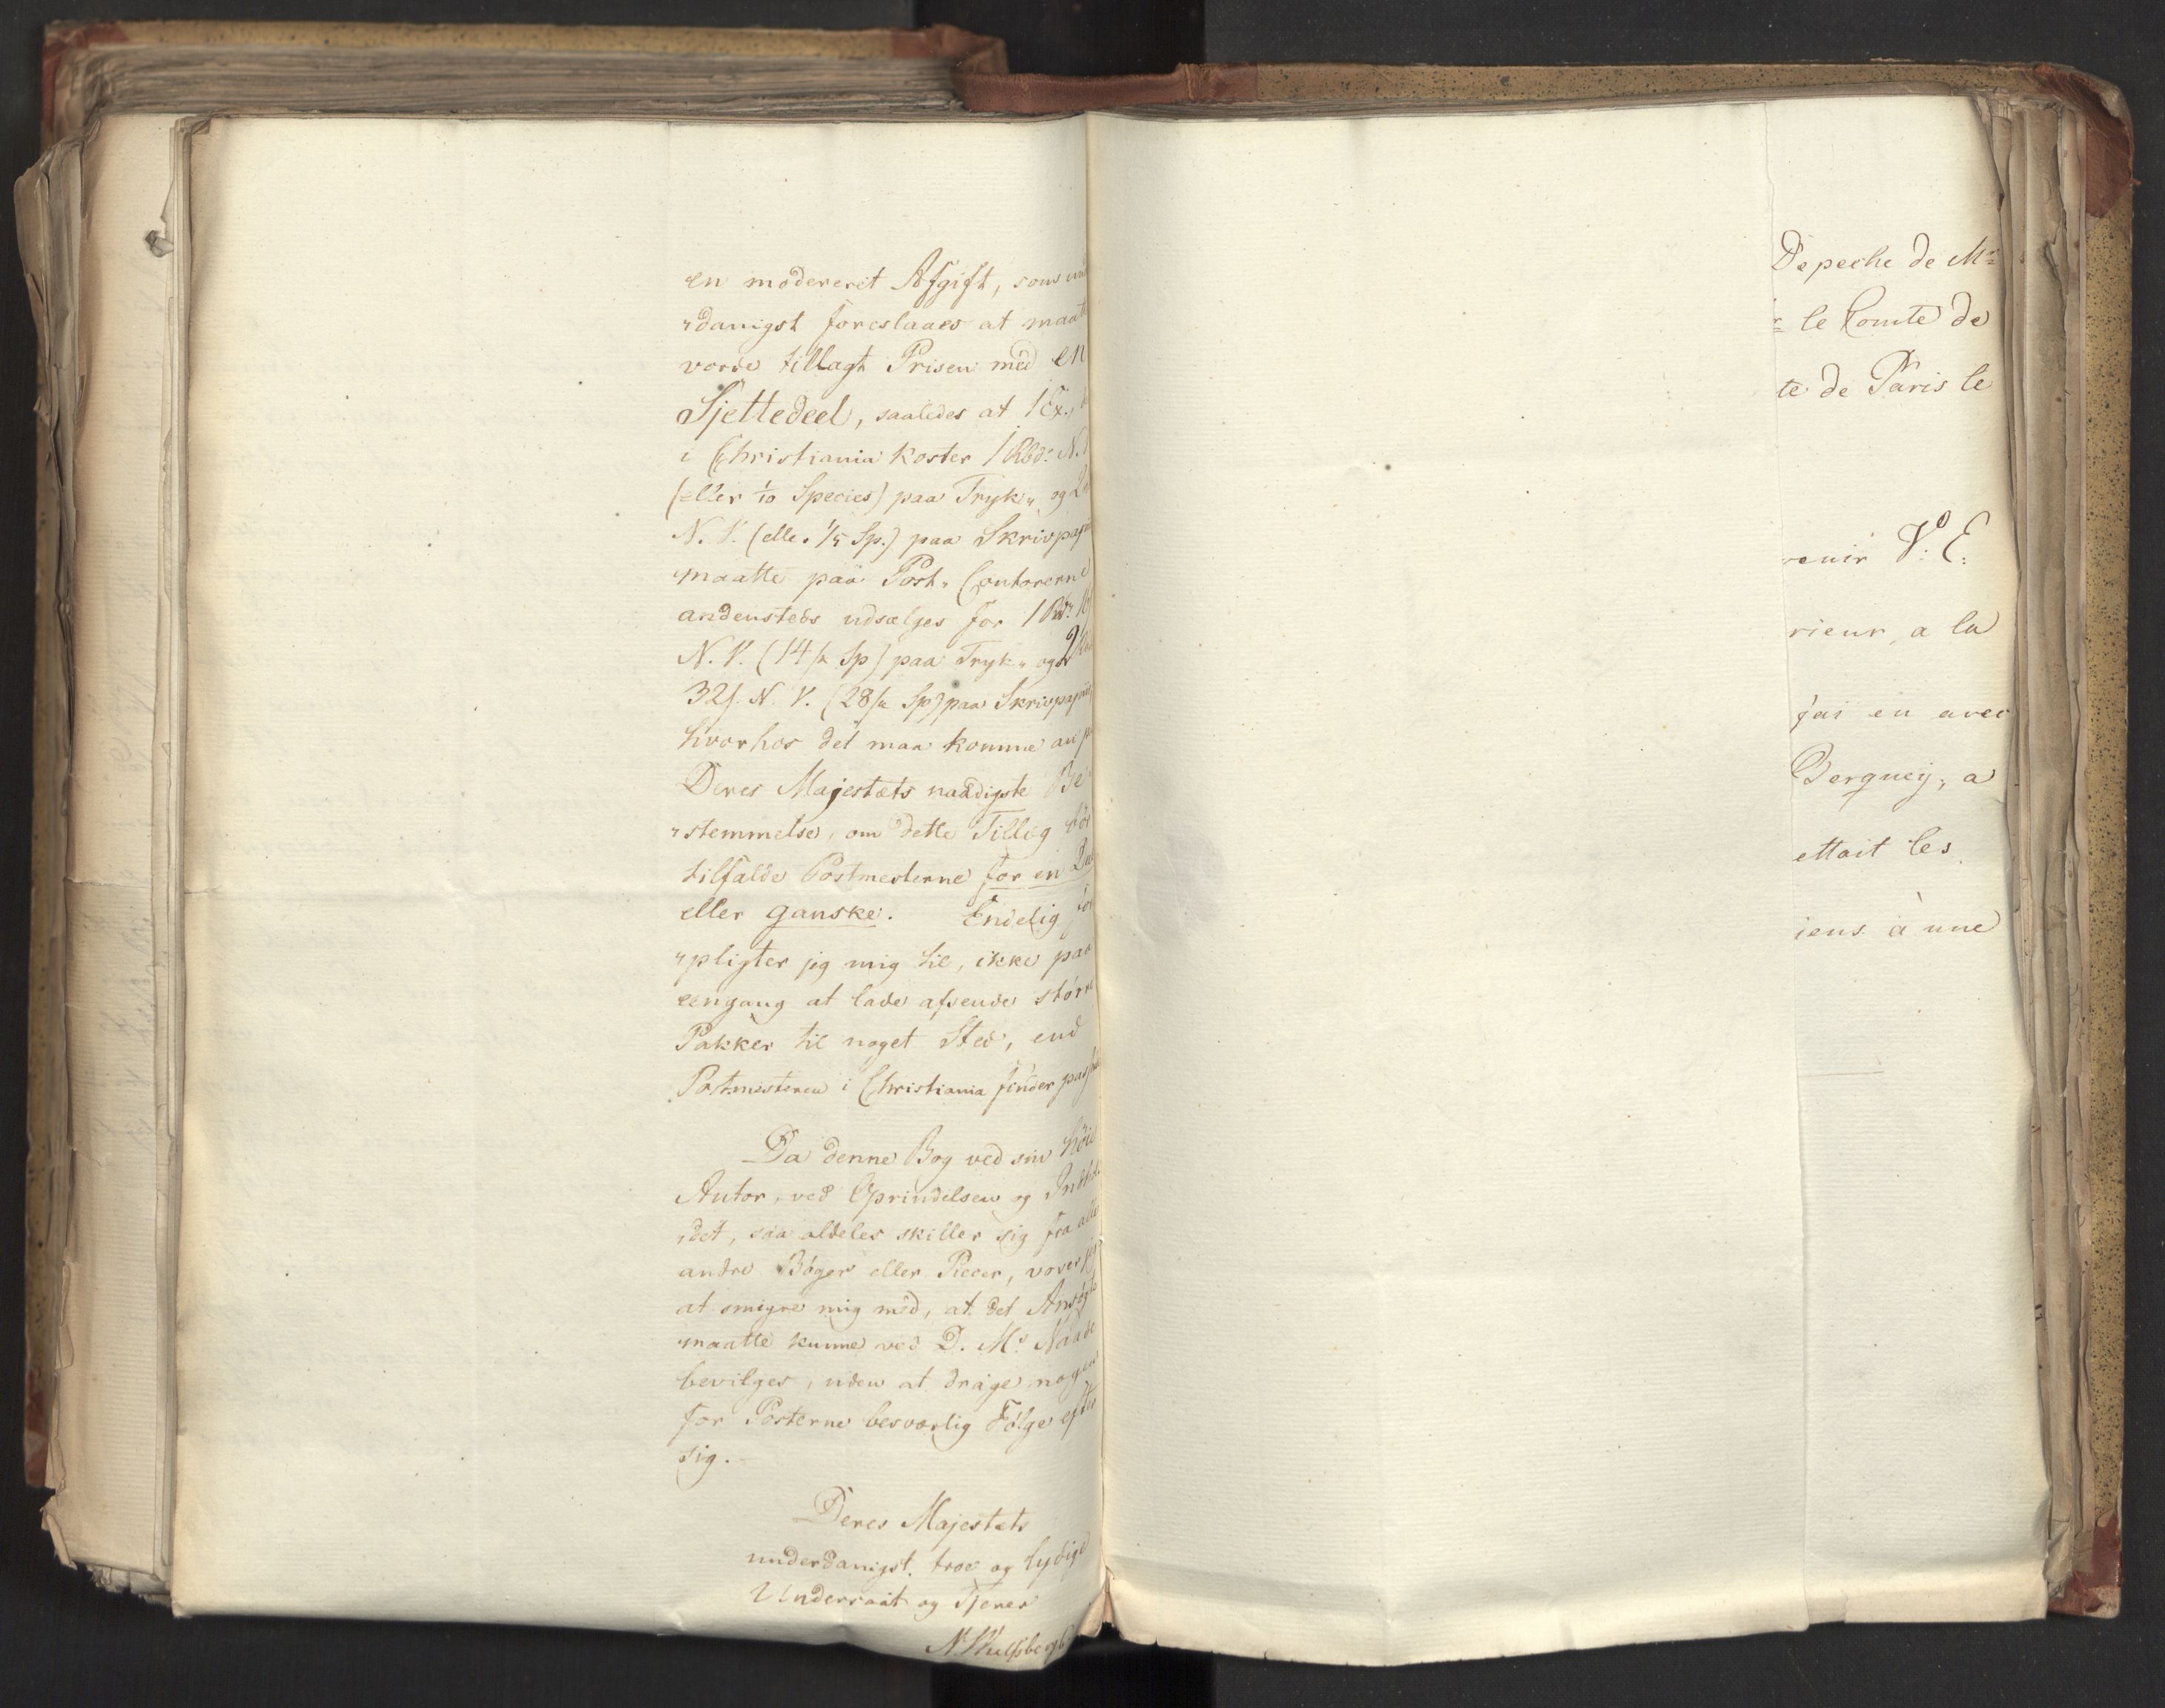 en modereret Afgift, som un
„danigst foreslaaes at maat
vorde tillagt Prisen med en
Sjettedeel, saaledes at 1 Ex.,
i Christiania koster 1 Rbd: N.
(eller 1/10 Species) paa Tryk„ og
N. V. (elle. 1/5 Sp.) paa Skrivpap
maatte paa Post„ Contorerne
andensteds udsælges for 1 Rbd:
N. V. (14 /s Sp) paa Tryk„ og 2
32 s. N. V. (28 /s Sp) paa Skrivpapiir,
hvorhos det maa komme an p
Deres Majestæts naadigste Be
„stemmelse, om dette Tillæg bör
tilfalde Postmesterne for en Deel
eller ganske. Endelig for
„pligter jeg mig til, ikke paa
eengang at lade afsende större
Pakker til noget Sted, end
Postmesteren i Christiania finder pass
Da denne Bog ved sin höie
Autor, ved Oprindelsen og Indhol
„det, saa aldeles skiller sig fra alle
andre Böger eller Piecer, vover jeg
at smigre mig med, at det Ansögte
maatte kunne ved D. M.s Naade
bevilges, uden at drage nogen
for Posterne besværlig Fölge efter
sig.
Deres Majestæts
underdanigst. troe og lydige
Undersaat og Tjener
N. Wulfsberg
Depeche de Mr
le Comte de
te de Paris le
venir V. E.
rieur, a la
j'ai eu avec
a
ettait les
iens à une